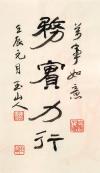 萬事如意
務實力行
壬辰元月玉山人